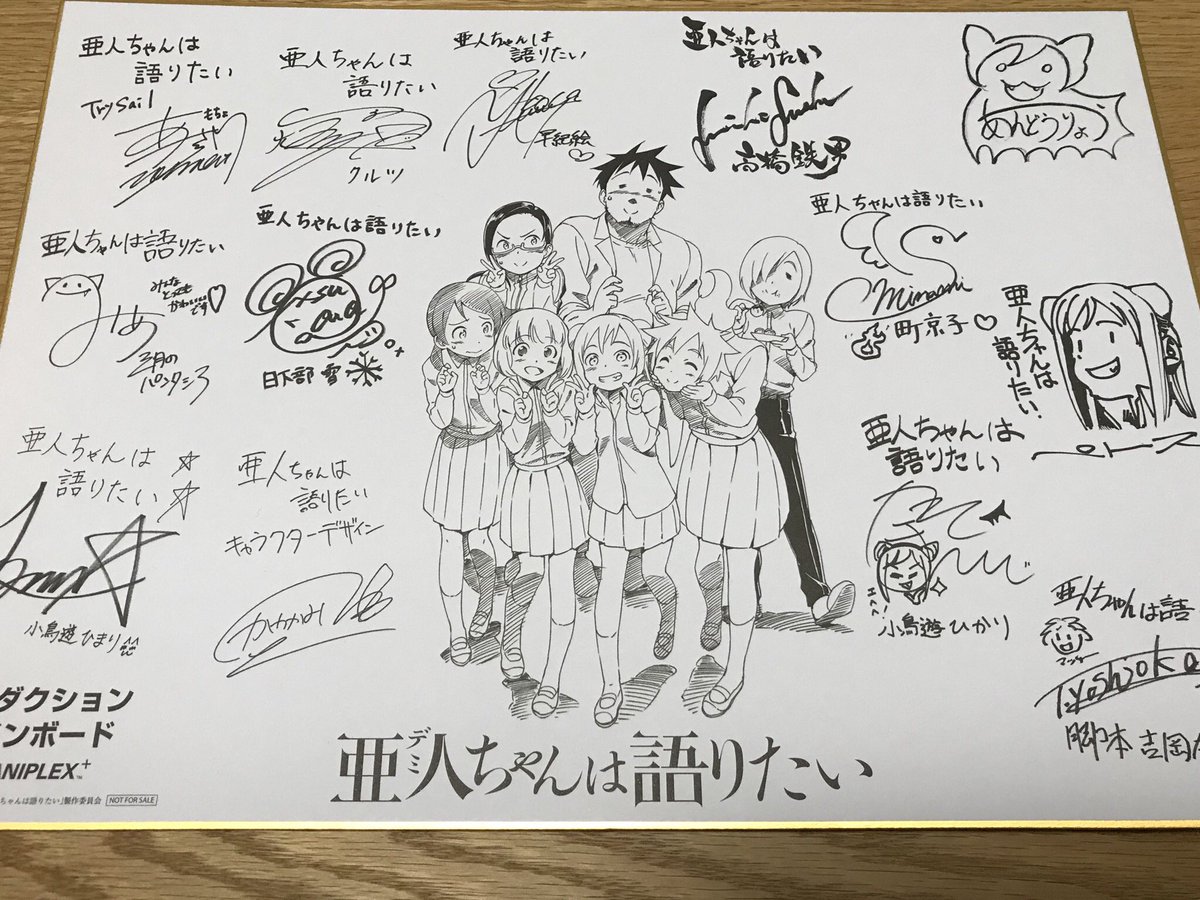 亜人ちゃんは
語りたい
TrySail
もちょ
亜人ちゃんは
語りたい
クルツ
亜人ちゃんは
語りたい
早紀絵♡
亜人ちゃんは
語りたい
高橋鉄男
あんどうりょう
亜人ちゃんは語りたい
みんな
とっても
かわいい
です♡
みあ
三月の
パンタシア
亜人ちゃんは語りたい
日下部 雪
亜人ちゃんは語りたい
Minami
町京子♡
亜人ちゃんは
語りたい!
ペトス
亜人ちゃんは
語りたい
小鳥遊ひまり
亜人ちゃんは
語りたい
キャラクターデザイン
亜人ちゃんは
語りたい
エヘヘ!
小鳥遊ひかり
亜人ちゃんは語
マッサー
T.yoshioka
脚本 吉岡
ダクション
ンボード
ANIPLEX+
ちゃんは語りたい」製作委員会 NOT FOR SALE
デミ
亜人ちゃんは語りたい